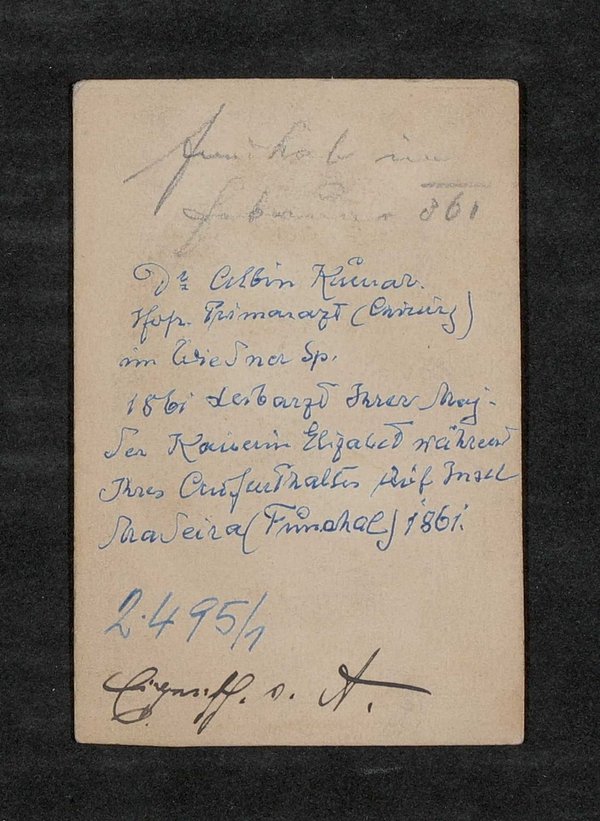 Funchal im
Februar 861
Dr Albin Kumar.
Hofr. Primararzt (Chirurg)
im Wiedner Sp.
1861 Leibarzt Ihrer Maj.
der Kaiserin Elizabet während
Ihres Aufenthaltes Auf Insel
Madeira (Funchal) 1861.
2.495/1
v. A.